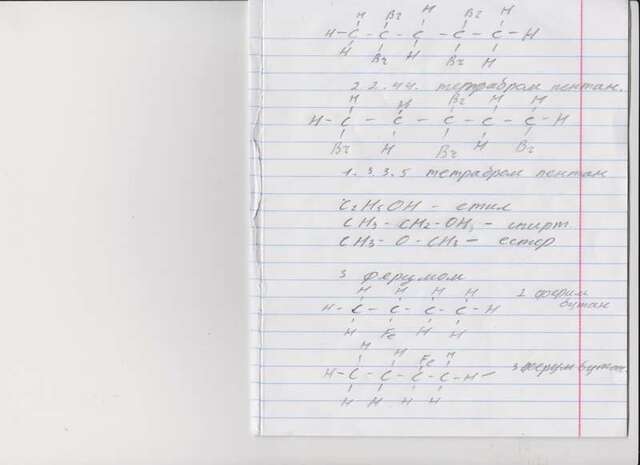 H Br H Br H
H - C - C - C - C - C - H
H Br H Br H
2.2.4.4. тетрабром пентан.
H H Br H H
H - C - C - C - C - C - H
Br H Br H Br
1.3.3.5 тетрабром пентан
C2H5OH - етил
CH3 - CH2 - OH - спирт
CH3 - O - CH3 - естер
З ферумом
H H H H
H - C - C - C - C - H
H Fe H H
2 ферум бутан
H H Fe H
H - C - C - C - C - H -
H H H H
3 ферум бутан.